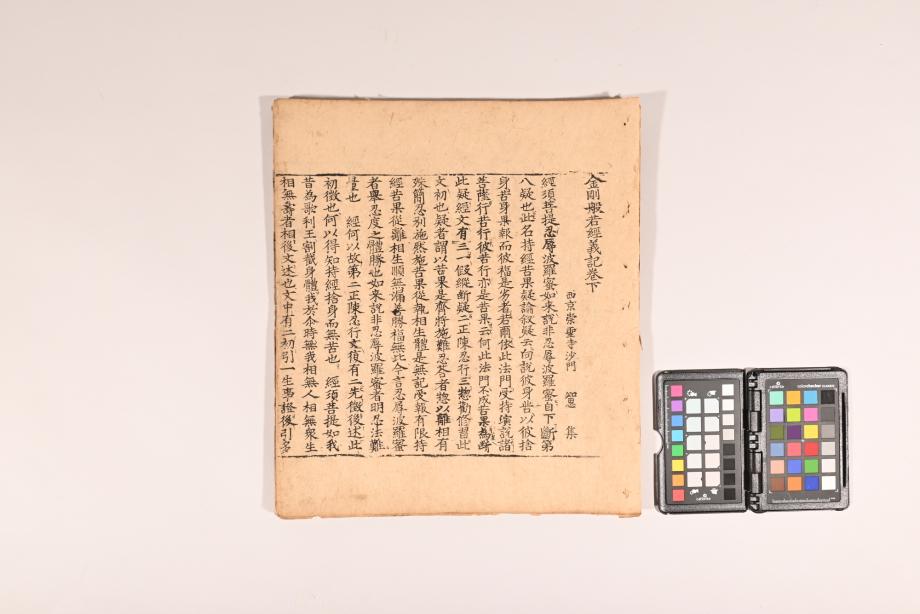 金剛般若經義記卷下
西京崇聖寺沙門 集
經須菩提忍辱波羅蜜如来說非忍辱波羅蜜自下斷第
八疑也此名持經苦果疑論叙疑云向說彼身苦以彼捨
身苦身果報而彼福是劣者若爾依此法門受持演說諸
菩薩行苦行彼苦行亦是苦果云何此法門不成苦果為斷
此疑經文有三一假縱斷疑二正陳忍行三惣勸修習此
文初也疑者謂以苦果是齊將施難忍荅者惣以離相有
殊簡忍别施然施苦果從執相生體是無記受報有限持
經苦果從離相生順無漏善勝福無比今言忍辱波羅蜜
者舉忍度之體勝也如来說非忍辱波羅蜜者明忍法難
量也 經何以故第二正陳忍行文復有二先徵後述此
初徵也何以得知持經捨身而無苦也 經須菩提如我
昔為歌利王割截身體我於尒時無我相無人相無衆生
相無壽者相後文述也文中有二初引一生事證後引多